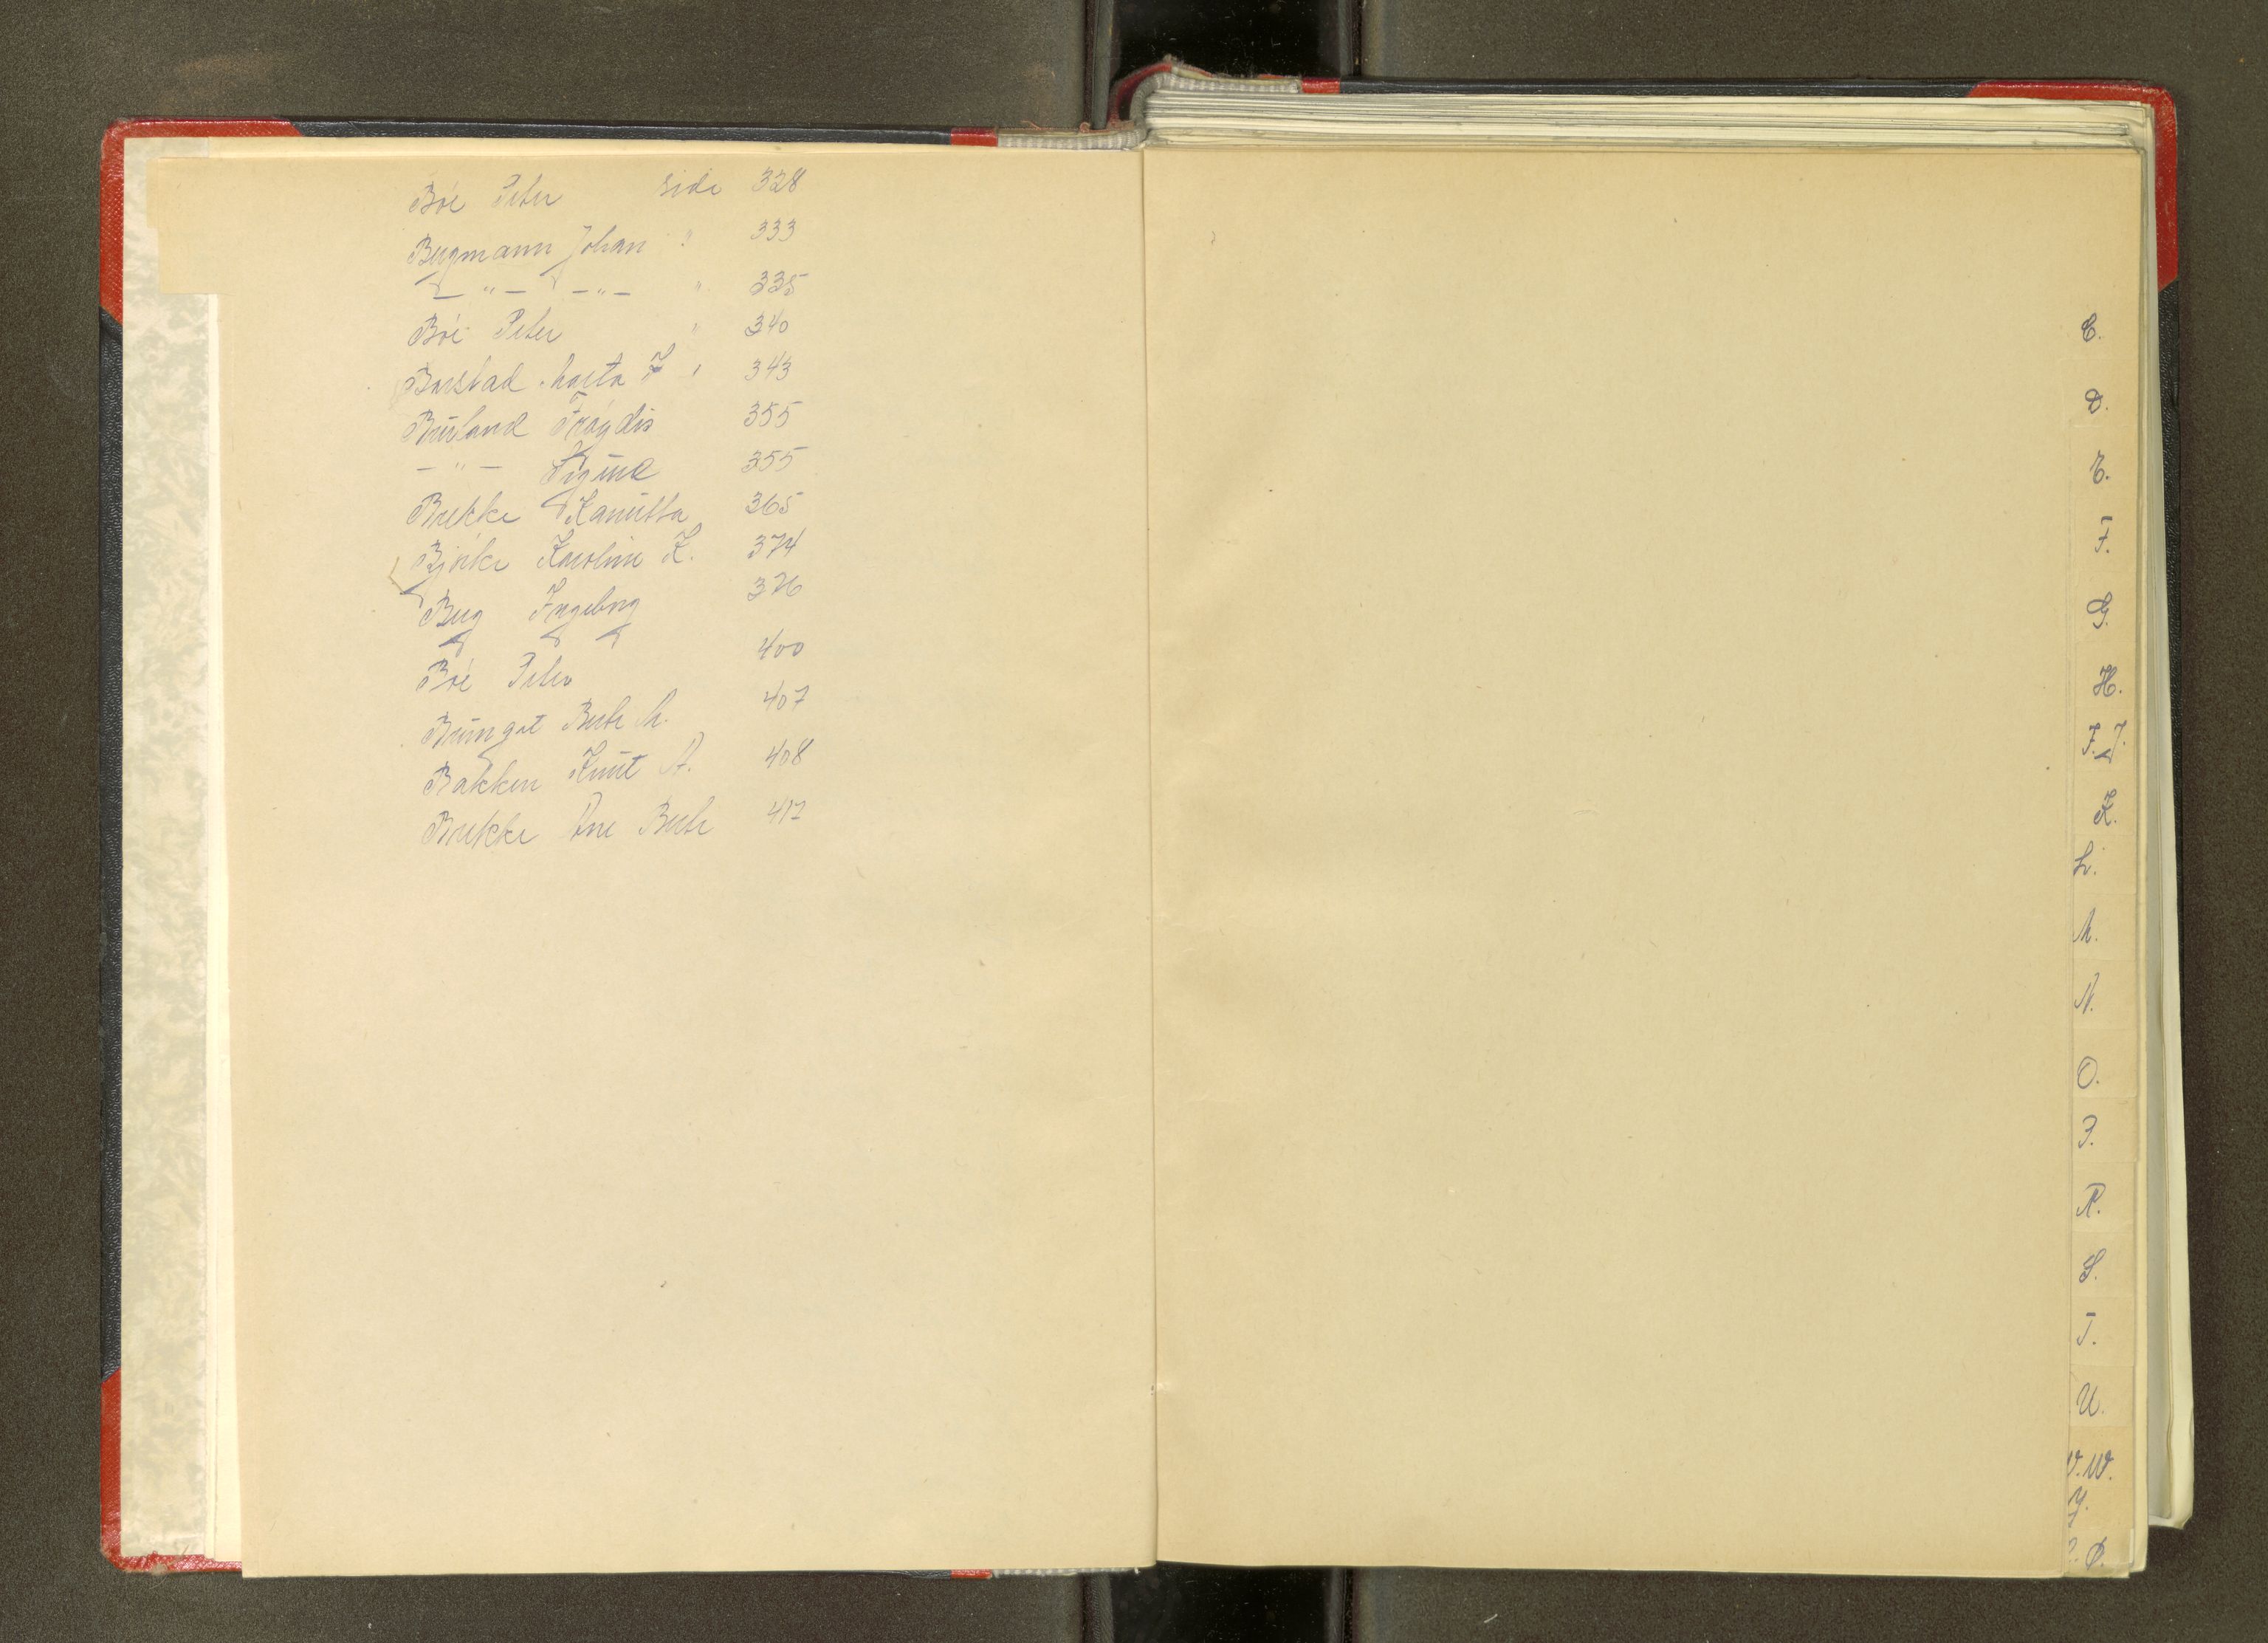 Bøe Peter side 328
Bergmann Johan " 333
— " — — " — " 335
Bøe Peter " 340
Barstad Marta " 343
Buland Frøydis 355
— " — Sigurd 355
Brekke Kanutta 365
Bjerke Karoline K. 374
Berg Ingeborg 376
Bøe Peter 400
Berte M. 407
Bakken Knut A. 408
Brekke Ane Berte 417
C.
D.
E.
F.
G.
H.
I. J.
K.
L.
M.
N.
O.
P.
R.
S.
T.
U.
V. W.
Y.
Ø.